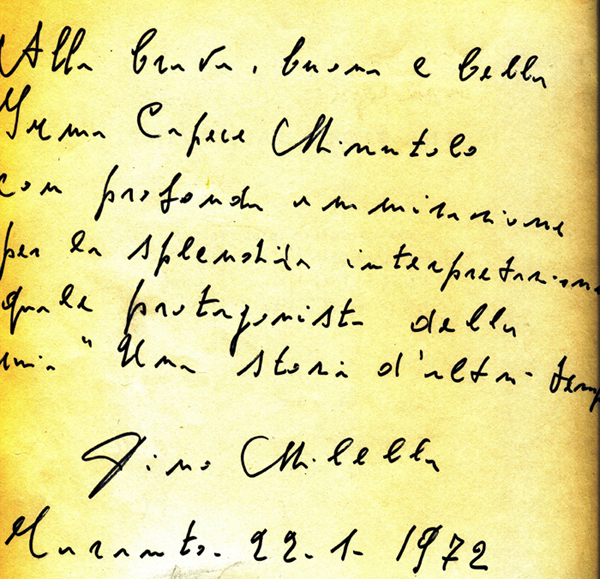 Alla brava, buona e bella
Irma Capece Minutolo
con profonda ammirazione
per la splendida interpretazione
quale protagonista della
mia "Una storia d'altri temp
Gino Milella
Taranto - 22-1-1972